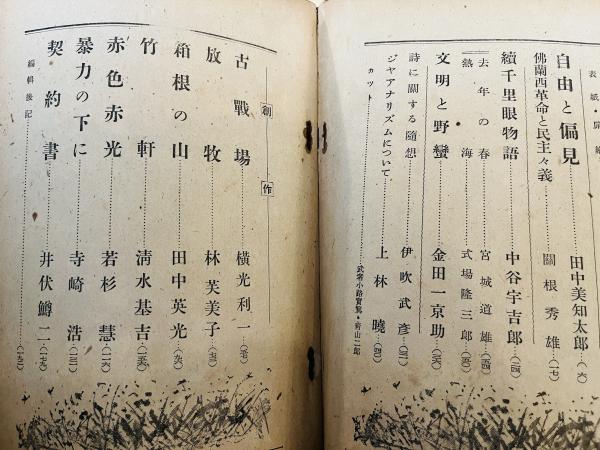 表紙・扉繪
自由と偏見……田中美知太郎…(六)
佛蘭西革命と民主々義……關根秀雄…(一七)
續千里眼物語……中谷宇吉郎…(二四)
去年の春……宮城道雄…(四四)
熱海……式場隆三郎…(五四)
文明と野蠻……金田一京助…(二六)
詩に關する隨想……伊吹武彥…(三一)
ジヤアナリズムについて……上林曉…(四一)
カット……武者小路實篤・靑山二郎
創作
古戰場……橫光利一…(六七)
放牧……林芙美子…(七三)
箱根の山……田中英光…(九六)
竹軒……清水基吉…(一五〇)
赤色赤光……若杉慧…(一一六)
暴力の下に……寺崎浩…(一三一)
契約書……井伏鱒二…(一九一)
編輯後記